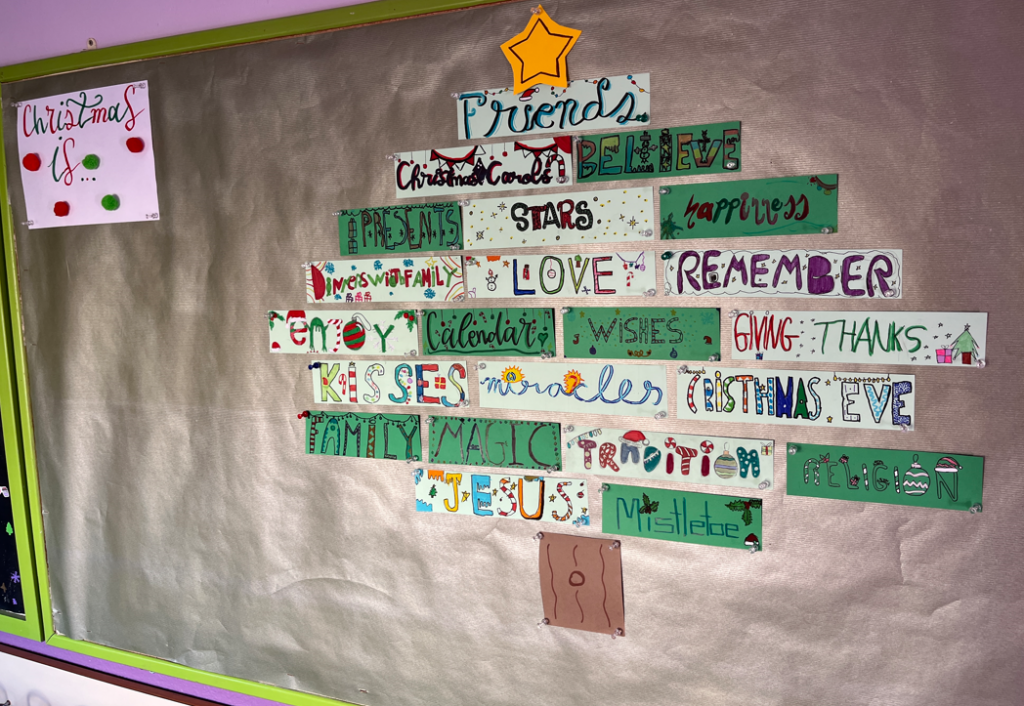 Christmas
is...
Friends
Christmas Carols
BELIEVE
PRESENTS
STARS
happiness
Dinners with FAMILY
LOVE
REMEMBER
enjoy
Calendar
WISHES
GIVING THANKS
KISSES
miracles
CRISTHMAS EVE
FAMILY
MAGIC
TRADITION
RELIGION
JESUS
Mistletoe